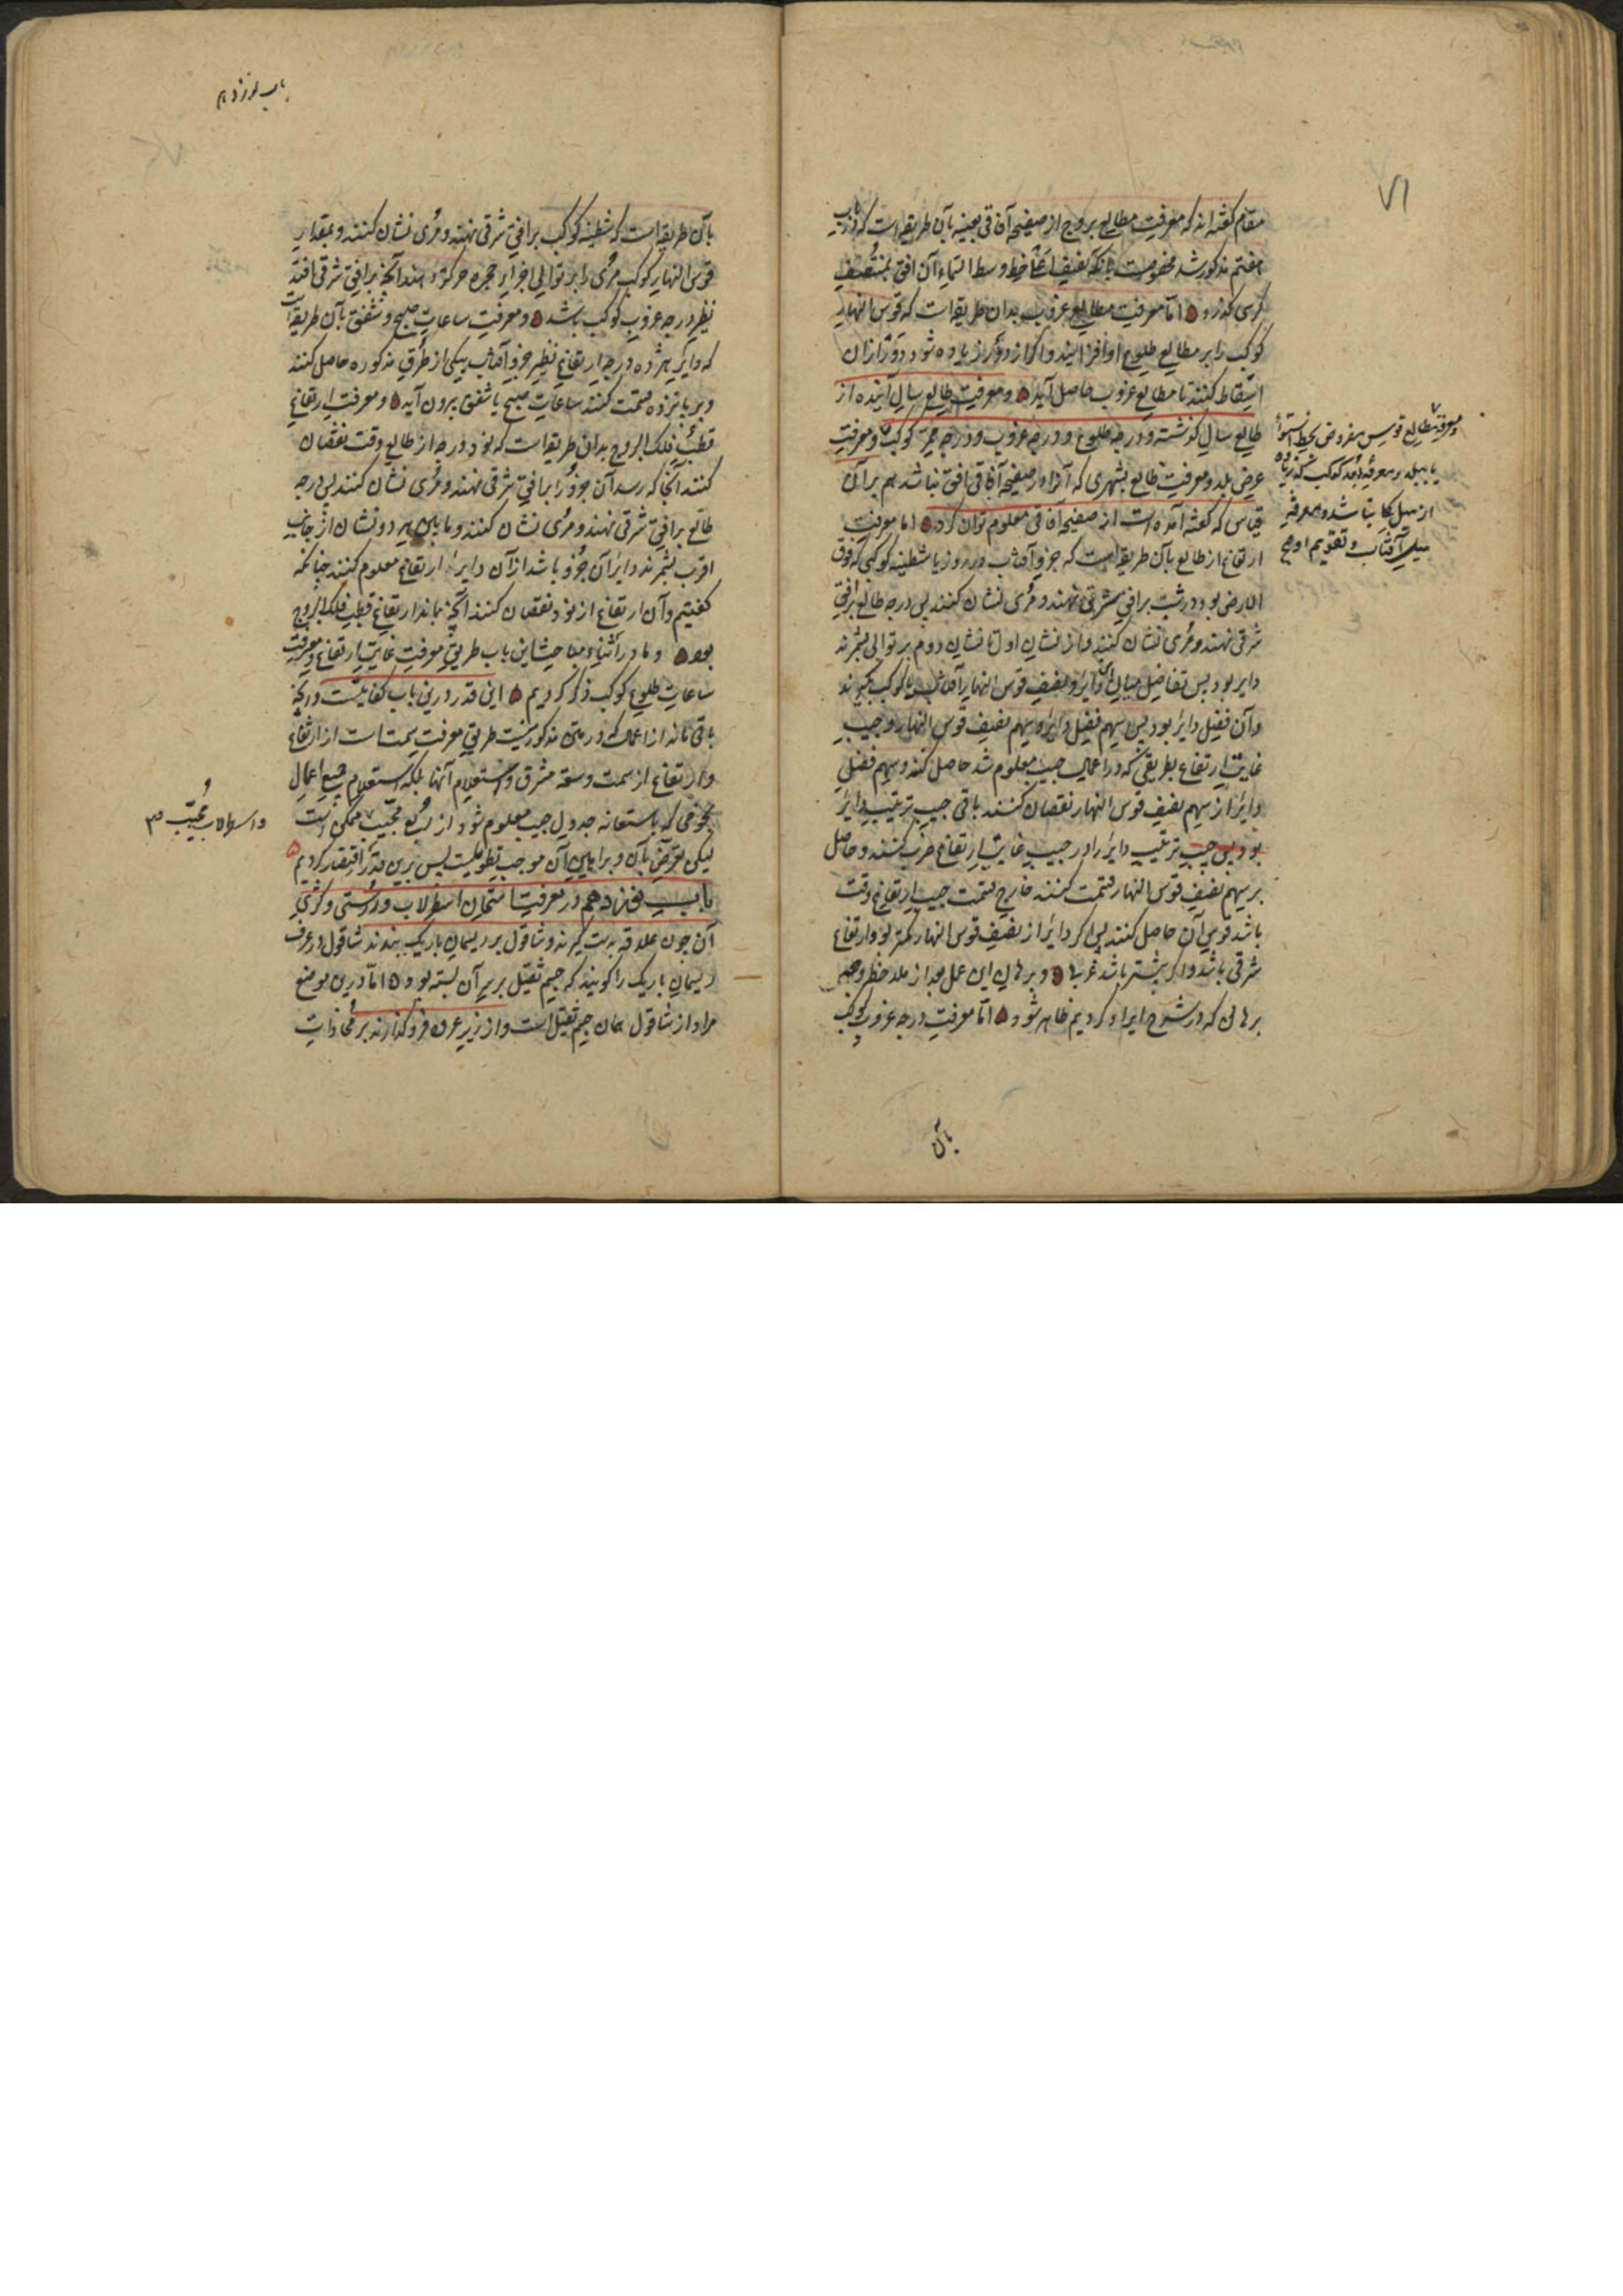 ۷۱
مقام گفته‌اند که معرفت مطالع بروج از صفیحه آفاقی بعینه بآن طریقه است که در باب
هفتم مذکور شد مخصوصست بآنکه خط وسط السماء آن افق بمنتصف
کرسی گذرد اما معرفت مطالع غروب بدان طریقه است که قوس النهار
کوکب را بر مطالع طلوع او افزایند و اگر از دور زیاده شود دور از آن
اسقاط کنند تا مطالع غروب حاصل آید و معرفت طالع سال آینده از
طالع سال گذشته و درجه طلوع و درجه غروب و درجه ممر کوکب و معرفت
عرض بلد و معرفت طالع بشهری که آنرا در صفیحه آفاقی افق نباشد هم بر آن
قیاس که گفته آمده است از صفیحه آفاقی معلوم توان کرد اما معرفت
ارتفاع از طالع بآن طریقه است که جزو آفتاب در روز یا شظیه کوکبی که فوق
الارض بود در شب بر افق شرقی نهند و مری نشان کنند پس درجه طالع بر افق
شرقی نهند و مری نشان کنند و از نشان اول تا نشان دوم بر توالی بشمرند
دایر بود پس تفاضل میان آن دایر و نصف قوس النهار آفتاب یا کوکب بگیرند
و آن فضل دایر بود پس سهم فضل دایر و سهم نصف قوس النهار و جیب
غایت ارتفاع بطریقی که در اعمال جیب معلوم شد حاصل کنند و سهم فضل
دایر از سهم نصف قوس النهار نقصان کنند باقی جیب ترتیب دایر
بود پس جیب ترتیب دایر را در جیب غایت ارتفاع ضرب کنند و حاصل
بر سهم نصف قوس النهار قسمت کنند خارج قسمت جیب ارتفاع وقت
باشد قوس آن حاصل کنند پس اگر دایر از نصف قوس النهار کمتر بود ارتفاع
شرقی باشد و اگر بیشتر باشد غربی و برهان این عمل بعد از ملاحظه
برهانی که در شرح ایراد کردیم ظاهر شود اما معرفت درجه غروب کوکب
بآن
و معرفت مطالع قوس مفروض بخط استوا
یا ببلد و معرفت بعد کوکب که زیاده
از میل کلی باشد و معرفت
میل آفتاب و تقویم او هم
باب نوزدهم
بآن طریقه است که شظیه کوکب بر افق شرقی نهند و مری نشان کنند و بمقدار
قوس النهار کوکب مری را بر توالی اجزاء حجره حرکت دهند آنچه بر افق شرقی افتد
نظیر درجه غروب کوکب باشد و معرفت ساعات صبح و شفق بآن طریقه است
که دایر هژده درجه ارتفاع نظیر جزو آفتاب بیکی از طرق مذکوره حاصل کنند
و بر پانزده قسمت کنند ساعات صبح یا شفق برون آید و معرفت ارتفاع
قطب فلک البروج بدان طریقه است که نود درجه از طالع وقت نقصان
کنند آنجا که رسد آن جزو را بر افق شرقی نهند و مری نشان کنند پس درجه
طالع بر افق شرقی نهند و مری نشان کنند و مابین هر دو نشان از جانب
اقرب بشمرند دایر آن جزو باشد از آن دایر ارتفاع معلوم کنند چنانکه
گفتیم و آن ارتفاع از نود نقصان کنند آنچه بماند ارتفاع قطب فلک البروج
بود و ما در اثناء مباحث این باب طریق معرفت غایت ارتفاع و معرفت
ساعات طلوع کوکب ذکر کردیم این قدر درین باب کفایتست و آنچه
باقی ماند از اعمال که در متن مذکور نیست طریق معرفت سمت است از ارتفاع
و ارتفاع از سمت و سعه مشرق و استعلام آنها بلکه استعلام جمیع اعمال
نجومی که باستعانه جدول جیب معلوم شود از ربع مجیب ممکن است
لیکن تعرض بآن و براهین آن موجب تطویلست پس برین قدر اقتصار کردیم
باب نوزدهم در معرفت امتحان اسطرلاب و درستی و کژی
آن چون علاقه بدست گیرند و شاقول بر ریسمان باریک ببندند شاقول در عرف
ریسمان باریک را گویند که جسم ثقیل بر سر آن بسته بود اما درین موضع
مراد از شاقول همان جسم ثقیل است و از زیر عروه فرو گذارند بر محاذات
و اسطرلاب مجیب صح